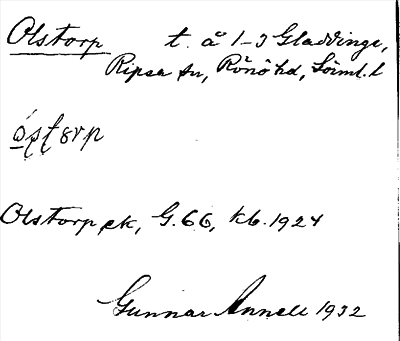 Olstorp t. å 1-3 Gladdinge,
Ripsa sn, Rönö hd, Sörml. l
Olstorp ek, G. 66, kb. 1924
Gunnar Annell 1932